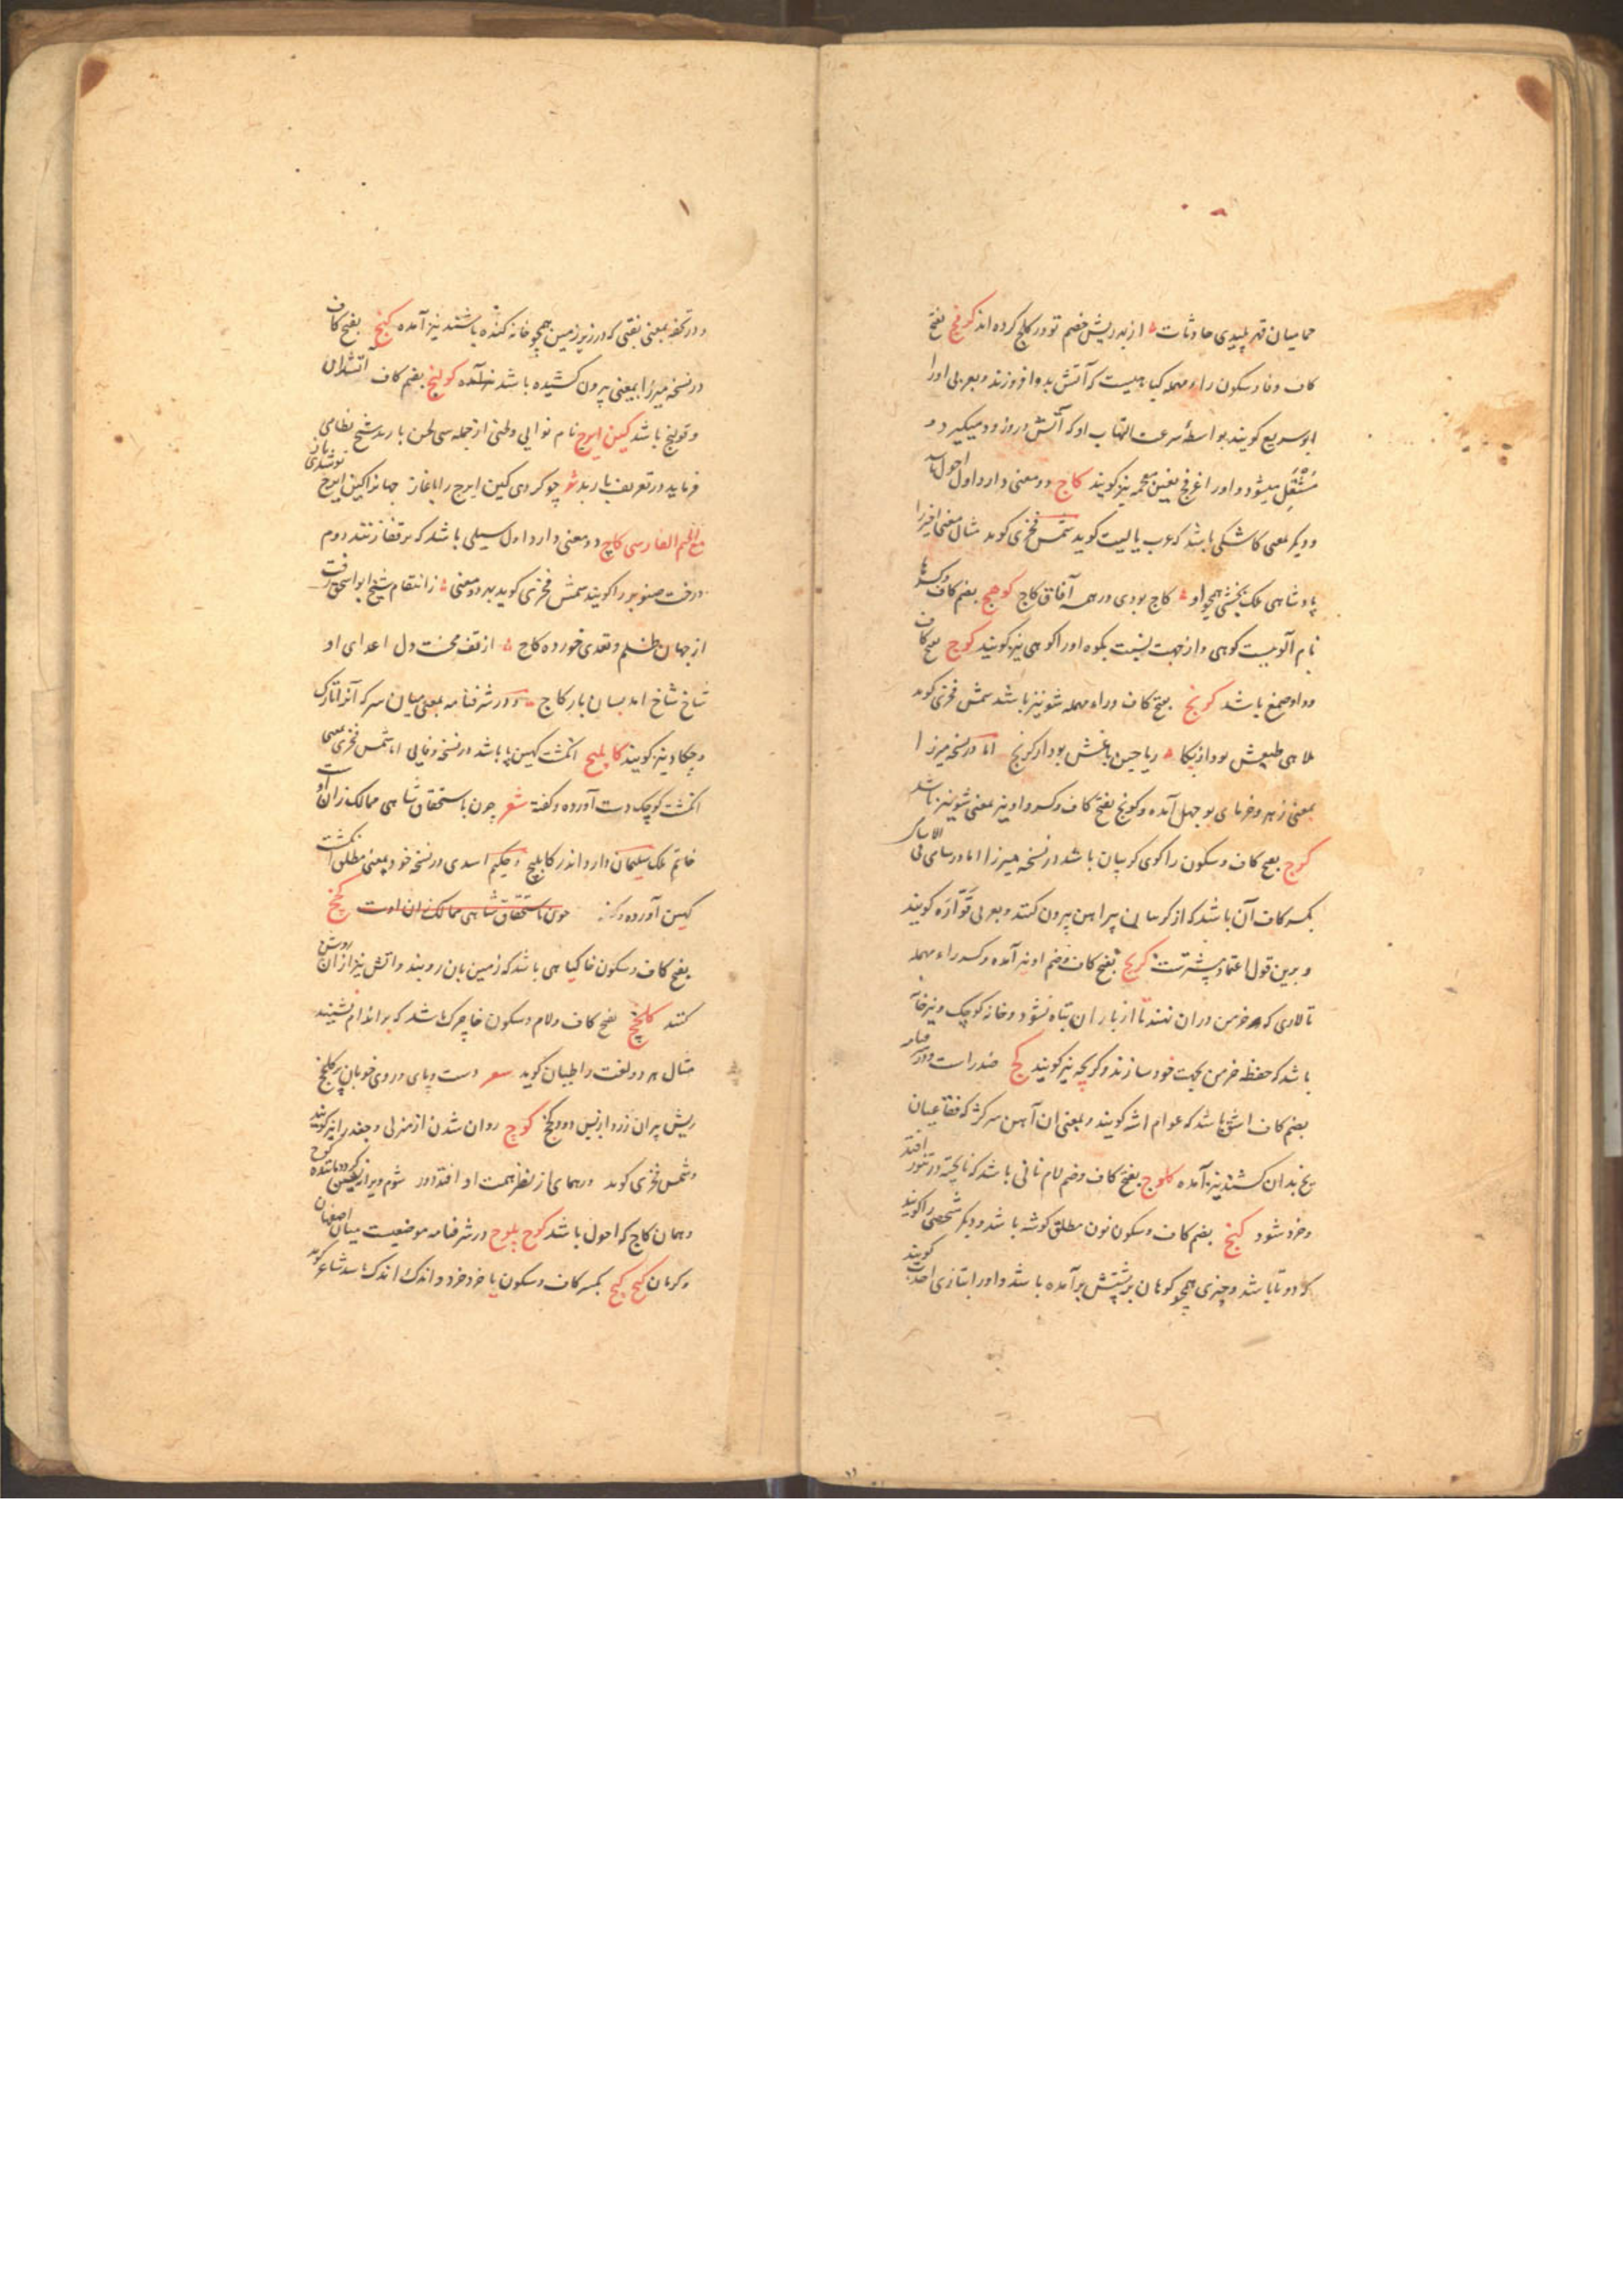 حمامیان قهر پلیدی حادثات از بهر ریش خضم تو در کلج کرده اند کوفج بفتح
کاف وفا وسکون راء مهمله کیاهیست که آتش بدو افروزند وبعربی اورا
ابو سریع کویند بواسطهٔ سرعت التهاب او که آتش در و زود میکیرد و
مشتعل میشود واورا غرفج بغین معجمه نیز کویند کاج دو معنی دارد اول احول باشد
ودیکر بمعنی کاشکی باشد که عرب یا لیت کوید شمس فخری کوید مثال معنی اخیر را
پادشاهی ملک بخشی همچو او کاج بودی در همه آفاق کاج کوهج بضم کاف وکسر ها
نام آلوییست کوهی واز جهت نسبت بکوه اورا کوهی نیز کویند کوج بفتح کاف
وواو صمغ باشد کرنج بفتح کاف وراء مهمله شونیز باشد شمس فخری کوید
ملاهی طبعش بود ازیکا ریاحین باغش بود از کرنج اما در نسخه میرزا
بمعنی زهر وخرمای بوجهل آمده وکونج بفتح کاف وکسر واو نیز بمعنی شونیز باشد
کرج بفتح کاف وسکون را کوی کریبان باشد در نسخه میرزا اما در سامی فی الاسامی
بکسر کاف آن باشد که از کریبان پیراهن بیرون کنند وبعربی قوّاره کویند
وبرین قول اعتماد بیشترست کریج بفتح کاف وضم او نیز آمده وکسر راء مهمله
تالاری که خرمن دران نهند تا از باران تباه نشود وخانه کوچک ونیز خانه
باشد که حفظه خرمن بجهت خود سازند وکریچه نیز کویند کج ضد راست ودر
بضم کاف اشق باشد که عوام اشه کویند وبمعنی ان آهن سر کژ که فقاعیان
یخ بدان کشند نیز آمده کلوج بفتح کاف وضم لام نانی باشد که ناپخته در تنور افتد
وخرد شود کنج بضم کاف وسکون نون مطلق کوشه باشد ودیکر شخصی را کویند
که دوتا باشد وچیزی همچو کوهان بر پشتش برآمده باشد واورا بتازی احدب کویند
ودر تحفه بمعنی نقبی که در زیر زمین همچو خانه کنده باشند نیز آمده کنج بفتح کاف
در نسخه میرزا بمعنی بیرون کشیده باشد کولنج بضم کاف اتشدان
وقولنج باشد کین ایرج نام نوایی ولحنی از جمله سی لحن باربد شیخ نظامی
فرماید در تعریف باربد شعر چو کردی کین ایرج را باغاز جهانرا کین ایرج نو شدی باز
مع الجیم الفارسی کاچ دو معنی دارد اول سیلی باشد که بر قفا زنند دوم
درخت صنوبر را کویند شمس فخری کوید بهر دو معنی زانتقام شیخ ابواسحق رفت
از جهان ظلم وتعدی خورده کاج از تف محنت دل اعدای او
شاخ شاخ امد بسان بار کاج ودر شرفنامه بمعنی میان سر که آنرا تارک
وچکاد نیز کویند کابلیج انکشت کهین پا باشد در نسخه وفایی اما شمس فخری بمعنی
انکشت کوچک دست آورده وکفته شعر چون باستحقاق شاهی ممالک زان اوست
خاتم ملک سلیمان دارد اندر کابلیج وحکیم اسدی در نسخه خود بمعنی مطلق انکشت
کهین آورده وکفته چون باستحقاق شاهی ممالک زان اوست کخ
بفتح کاف وسکون خا کیاهی باشد که زمین بان روبند واتش نیز ازان روشن
کنند کلخج بفتح کاف ولام وسکون خا چرک باشد که بر اندام نشیند
مثال هر دو لغت را طیان کوید شعر دست وپای وروی خوبان پر کلخج
ریش پیران زرد از بس دود کخ کوچ روان شدن از منزلی وجغد را نیز کویند
وشمس فخری کوید ورهمای از نظر همت او افتد دور شوم وویرانه نشین کردد ماننده کوچ
وهمان کاج که احول باشد کوچ بلوچ در شرفنامه موضعیست میان اصفهان
وکرمان کیچ کیچ بکسر کاف وسکون یا خرد خرد واندک اندک باشد شاعر کوید